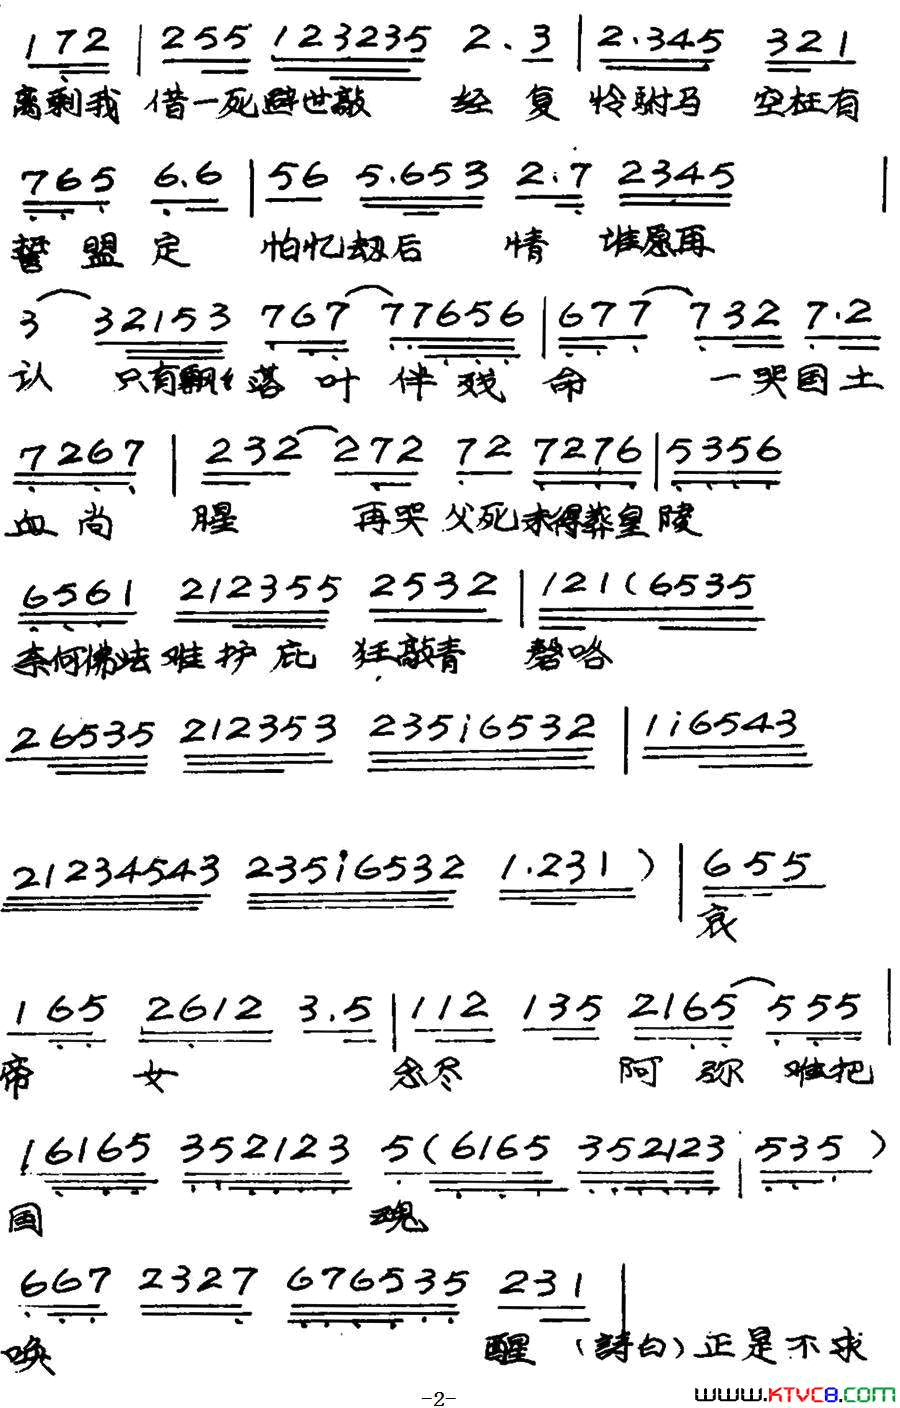 172 | 255 123235 2.3 | 2.345 321
离剩我 借一死避世敲 经 复 怜驸马 空枉有
765 6.6 | 56 5.653 2.7 2345 |
誓 盟 定 怕忆劫后 情 谁愿再
3 32153 767 77656 | 677 732 7.2
认 只有飘飘落 叶 伴 残 命 一哭国土
7267 | 232 272 72 7276 | 5356
血 尚 腥 再哭父死未得葬皇陵
6561 212355 2532 | 121(6535
奈何佛法难护庇 狂敲青 磬咯
26535 212353 235i6532 | 1i6543
21234543 235i6532 1.231) | 655
哀
165 2612 3.5 | 112 135 2165 555 |
帝 女 念尽 阿 弥 难把
16165 352123 5(6165 352123 | 535)
国 魂
667 2327 676535 231 |
唤 醒 (詩白)正是不求
-2-
WWW.KTVC8.COM